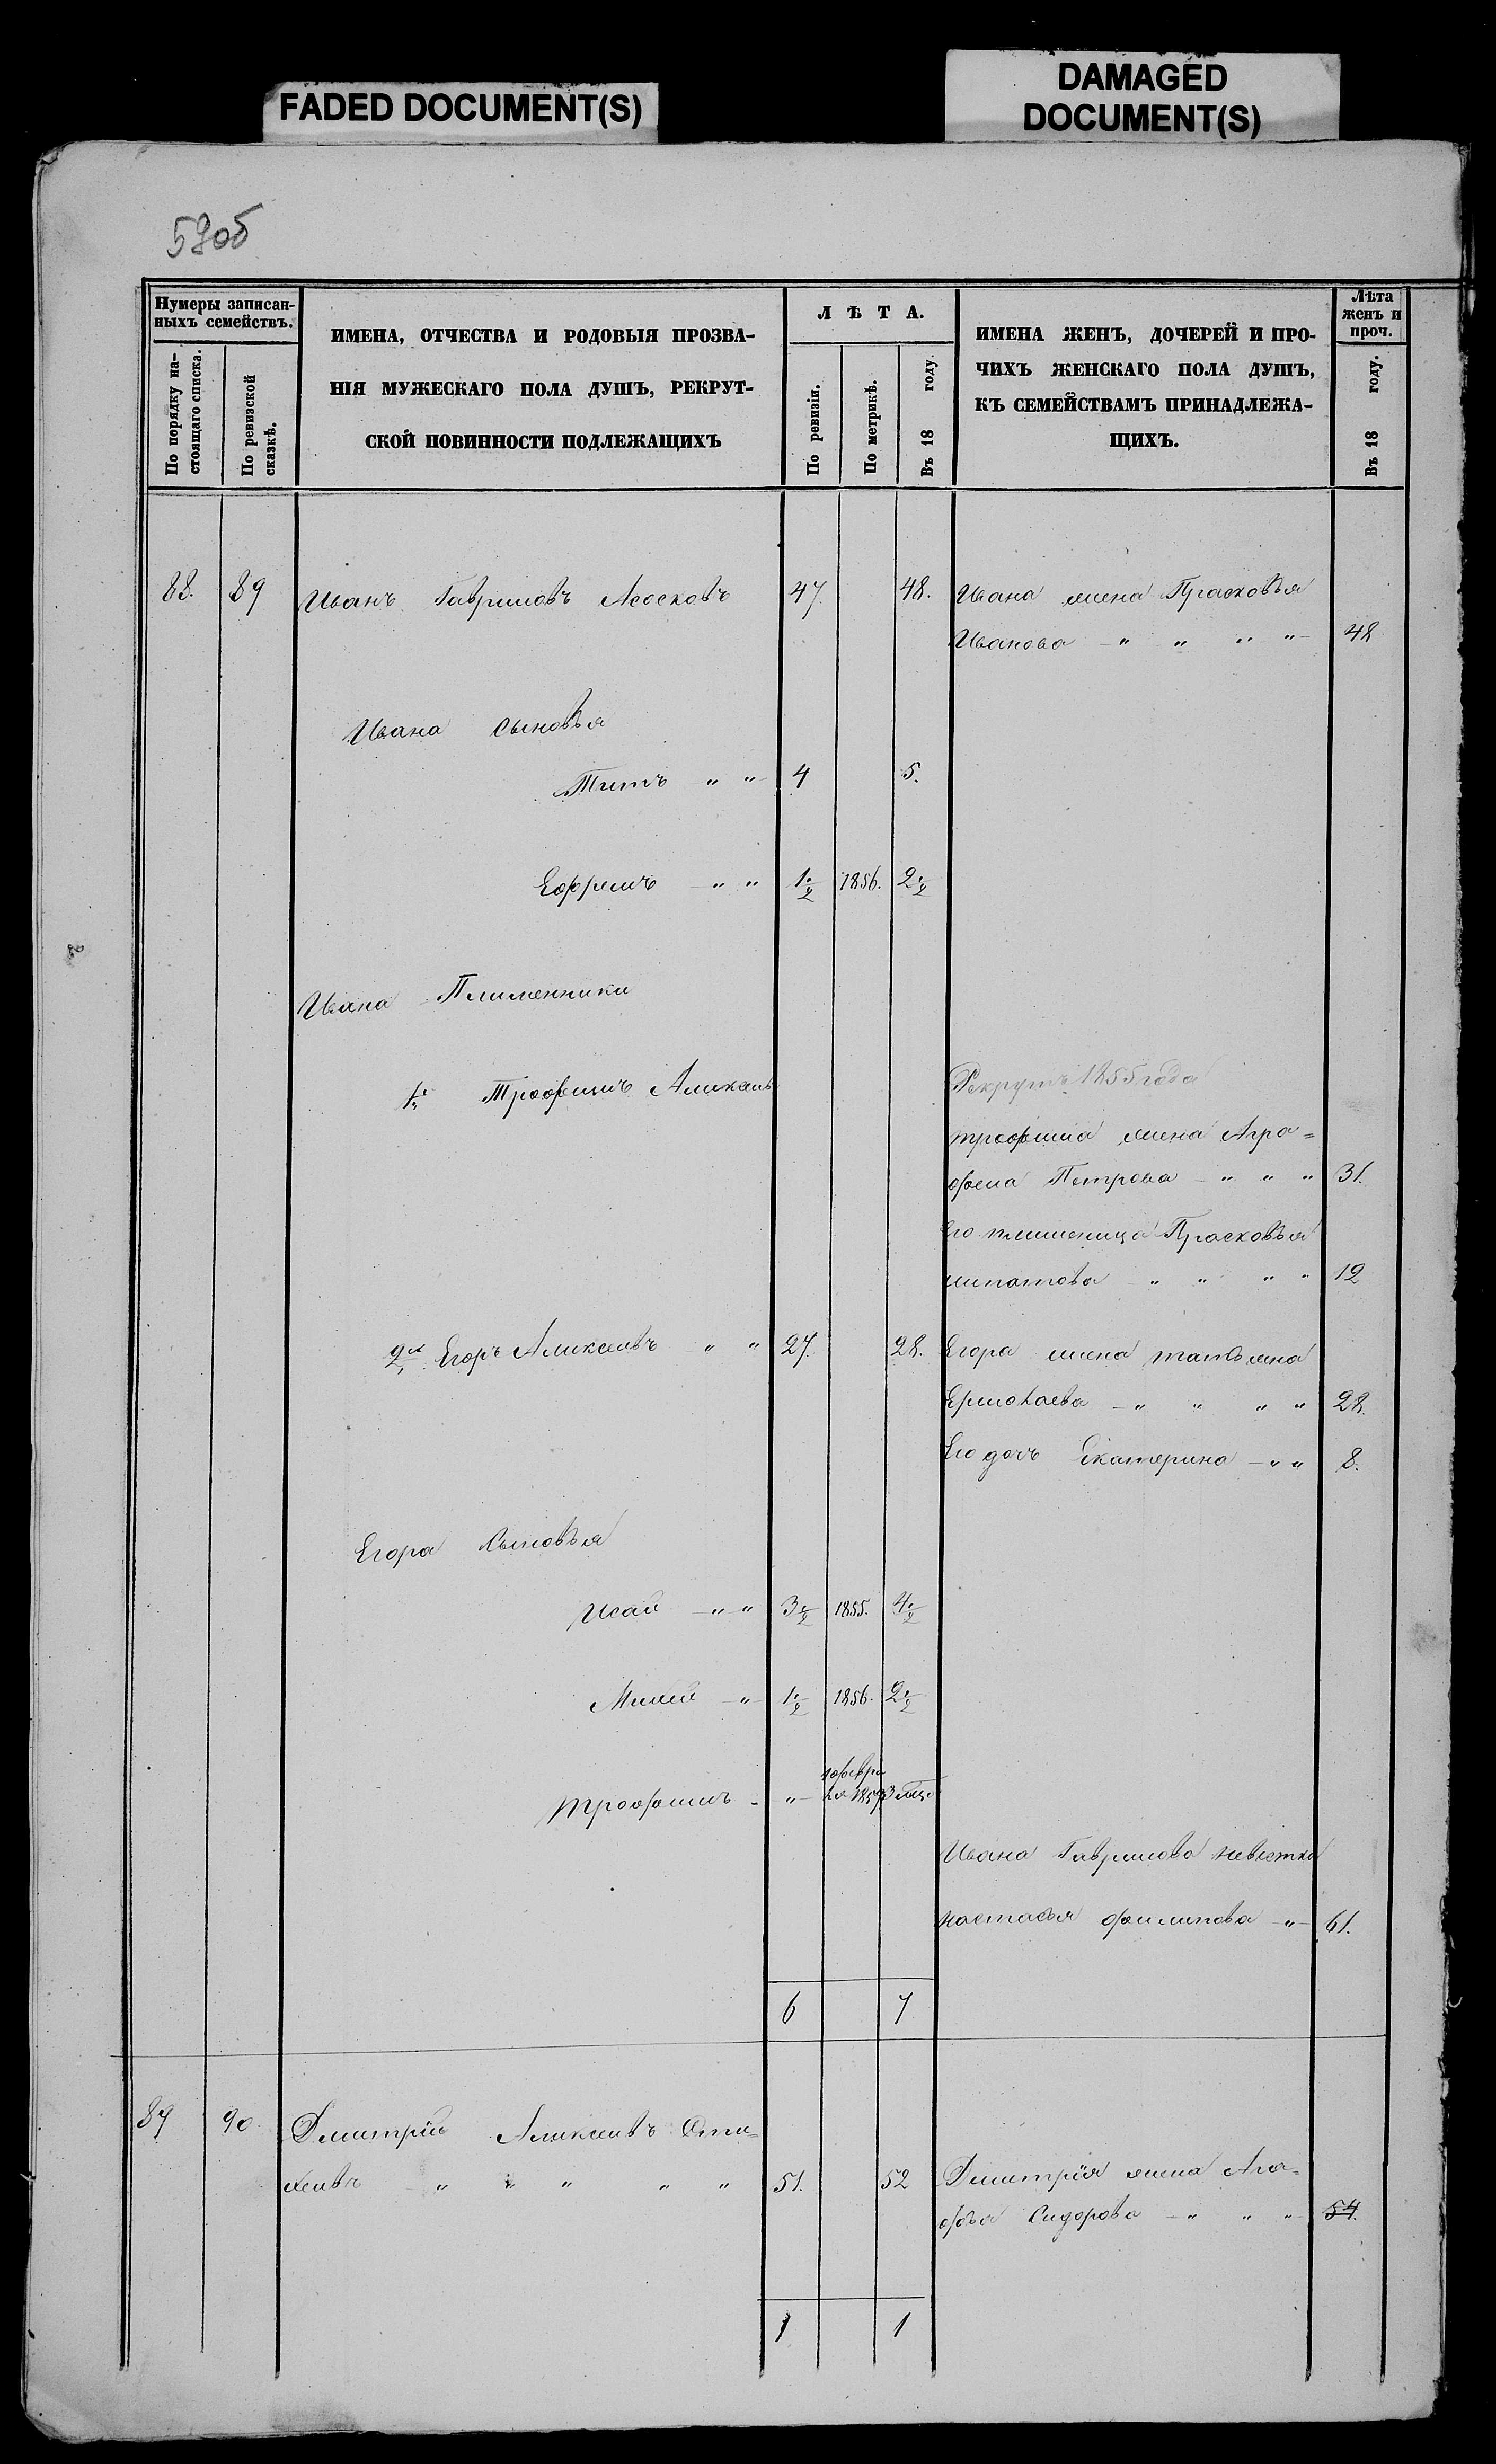 FADED DOCUMENT(S)
DAMAGED
DOCUMENT(S)
59об
Нумеры записан-
ныхъ семействъ.
По порядку на-
стоящаго списка.
По ревизской
сказкѣ.
ИМЕНА, ОТЧЕСТВА И РОДОВЫЯ ПРОЗВА-
НІЯ МУЖЕСКАГО ПОЛА ДУШЪ, РЕКРУТ-
СКОЙ ПОВИННОСТИ ПОДЛЕЖАЩИХЪ
ЛѢТА.
По ревизіи.
По метрикѣ.
Въ 18 году.
ИМЕНА ЖЕНЪ, ДОЧЕРЕЙ И ПРО-
ЧИХЪ ЖЕНСКАГО ПОЛА ДУШЪ,
КЪ СЕМЕЙСТВАМЪ ПРИНАДЛЕЖА-
ЩИХЪ.
Лѣта
женъ и
проч.
Въ 18 году.
88. 89 Иванъ Гавриловъ 47. 48. Ивана жена Прасковья
Иванова — " " " " — 48
Ивана сыновья
Титъ — " " — 4 5.
Ефремъ — " " 1/2 1856. 2 1/2
Ивана Племенники
1й Трофимъ Алексеевъ Рекрутъ 1855 года
трофима жена Агра=
фена Петрова — " " " 31.
его племеница Прасковья
ипатова — " " " " 12
2й Егоръ Алексеевъ " " 27. 28. Егора жена татьяна
Ермолаева — " " " " 28.
Его дочь Екатерина — " " 8.
Егора Сыновья
Исай — " " 3 1/2 1855. 4 1/2
Милей — " — 1/2 1856. 2 1/2
трофимъ — " — 1858 3 мѣц.
Ивана Гаврилова невѣстка
настасья филипова — " — 61.
6 7
89 90. Дмитрій Алексеевъ
" " " " " 51. 52 Дмитрія жена Ага=
фья Сидорова — " " " — 54.
1 1